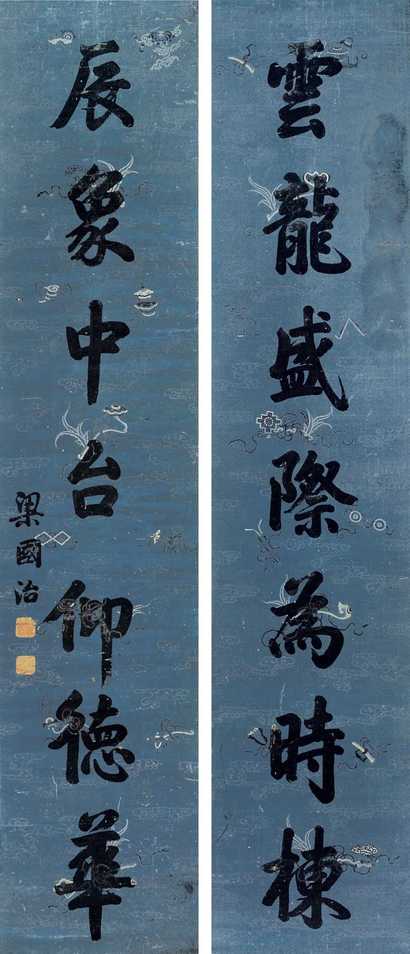 雲龍盛際為時棟
辰象中台仰德華
梁國治